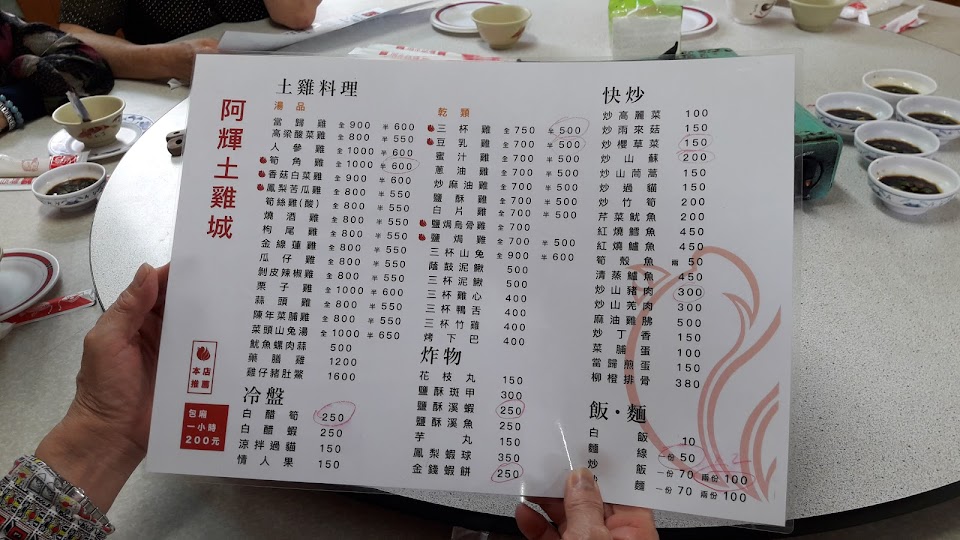 阿輝土雞城
本店推薦
包廂
一小時
200元
土雞料理
湯品
當歸雞 全900 半600
高梁酸菜雞 全800 半550
人參雞 全1000 半600
筍角雞 全1000 半600
香菇白菜雞 全800 半550
鳳梨苦瓜雞 全800 半550
筍絲雞(酸) 全800 半550
燒酒雞 全800 半550
枸尾雞 全800 半550
金線蓮雞 全800 半550
瓜仔雞 全800 半550
剝皮辣椒雞 全800 半550
栗子雞 全1000 半600
蒜頭雞 全800 半550
陳年菜脯雞 全800 半550
菜頭山兔湯 全1000 半650
魷魚螺肉蒜 500
藥膳雞 1200
雞仔豬肚鱉 1600
冷盤
白醋筍 250
白醋蝦 250
涼拌過貓 150
情人果 150
乾類
三杯雞 全750 半500
豆乳雞 全700 半500
蜜汁雞 全700 半500
蔥油雞 全700 半500
炒麻油雞 全700 半500
鹽酥雞 全700 半500
白片雞 全700 半500
鹽焗烏骨雞 全700
鹽焗雞 全700 半500
三杯山兔 全900 半600
蔭鼓泥鰍 500
三杯泥鰍 500
三杯雞心 400
三杯鴨舌 400
三杯竹雞 400
烤下巴 400
炸物
花枝丸 150
鹽酥斑甲 300
鹽酥溪蝦 250
鹽酥溪魚 250
芋丸 150
鳳梨蝦球 350
金錢蝦餅 250
快炒
炒高麗菜 100
炒雨來菇 150
炒櫻草菜 150
炒山蘇 200
炒山茼蒿 150
炒過貓 150
炒竹筍 200
芹菜魷魚 200
紅燒鱈魚 450
紅燒鱸魚 450
筍殼魚 兩50
清蒸鱸魚 450
炒山豬肉 300
炒山羌肉 300
麻油雞胇 500
炒丁香 150
菜脯蛋 100
當歸煎蛋 150
柳橙排骨 380
飯・麵
白飯 10
麵線 一份50
炒飯 一份70 兩份100
麵 一份70 兩份100